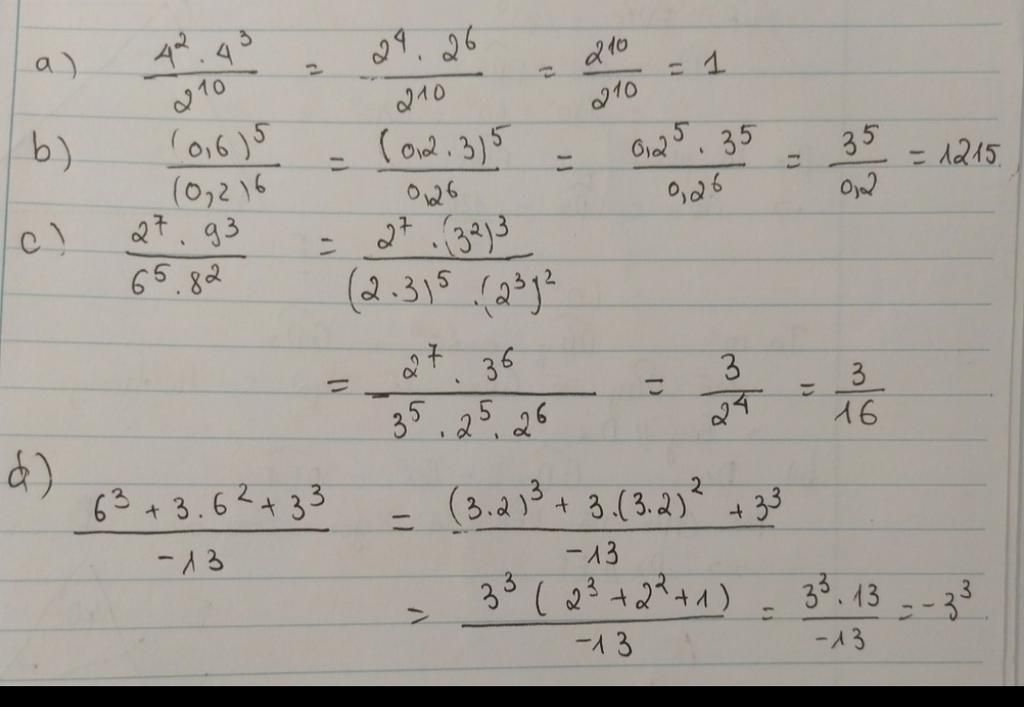 a) \frac{4^2 . 4^3}{2^{10}} = \frac{2^4 . 2^6}{2^{10}} = \frac{2^{10}}{2^{10}} = 1
b) \frac{(0,6)^5}{(0,2)^6} = \frac{(0,2 . 3)^5}{0,2^6} = \frac{0,2^5 . 3^5}{0,2^6} = \frac{3^5}{0,2} = 1215
c) \frac{2^7 . 9^3}{6^5 . 8^2} = \frac{2^7 . (3^2)^3}{(2 . 3)^5 . (2^3)^2}
= \frac{2^7 . 3^6}{3^5 . 2^5 . 2^6} = \frac{3}{2^4} = \frac{3}{16}
d) \frac{6^3 + 3 . 6^2 + 3^3}{-13} = \frac{(3.2)^3 + 3 . (3.2)^2 + 3^3}{-13}
= \frac{3^3 ( 2^3 + 2^2 + 1 )}{-13} = \frac{3^3 . 13}{-13} = -3^3